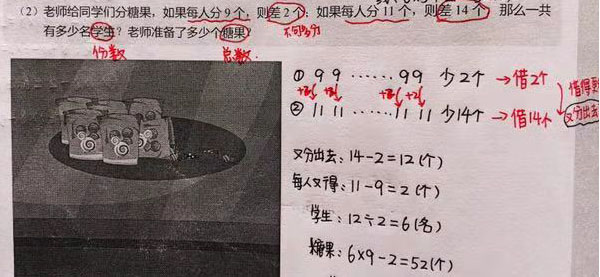 (2) 老师给同学们分糖果，如果每人分 9 个，则差 2 个；如果每人分 11 个，则差 14 个。那么一共
有多少名学生？老师准备了多少个糖果？
份数
总数
不同多分
① 9 9 ······ 9 9 少2个 →借2个
+2 +2 +2 +2
借得更
② 11 11 ······ 11 11 少14个 →借14个
又分出去
又分出去：14-2=12(个)
每人又得：11-9=2(个)
学生：12÷2=6(名)
糖果：6×9-2=52(个)